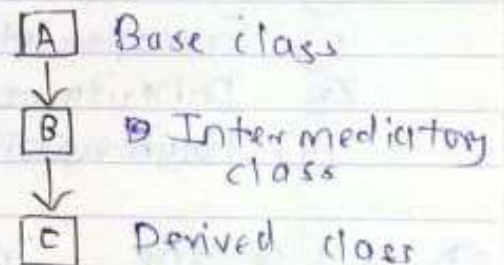 A Base class
B Intermediatory
class
C Derived class